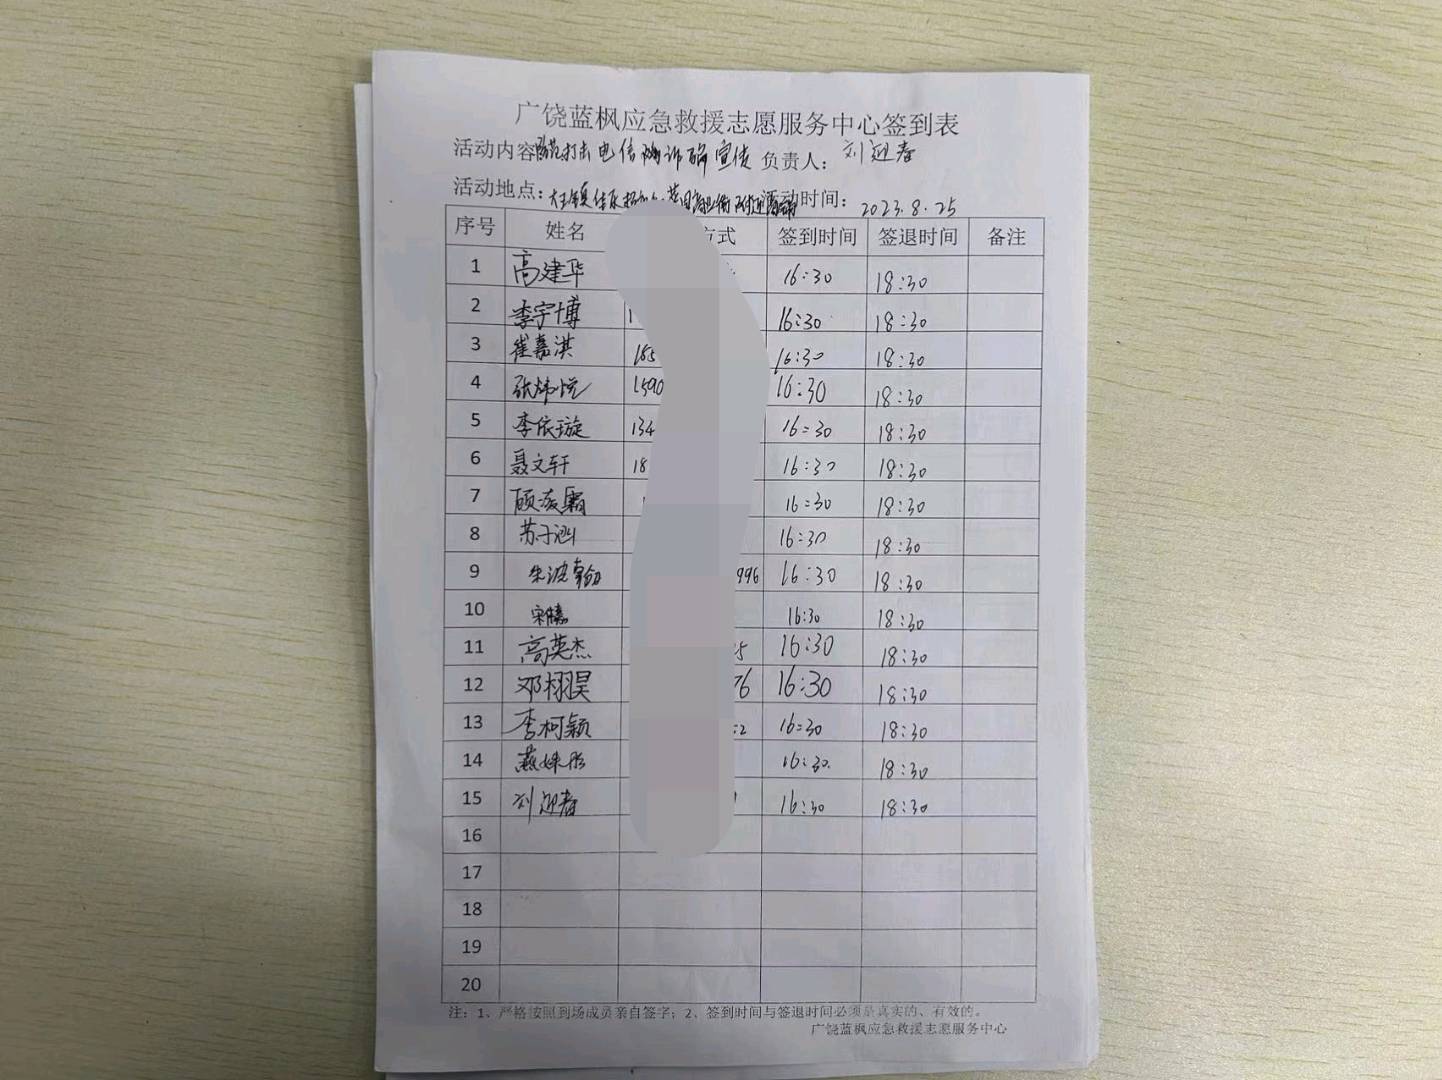 广饶蓝枫应急救援志愿服务中心签到表
活动内容：防范打击电信网络诈骗宣传 负责人：刘迎春
活动地点： 活动时间：2023.8.25
序号 姓名 方式 签到时间 签退时间 备注
1 高建华 16:30 18:30
2 李宇博 1 16:30 18:30
3 崔嘉淇 185 16:30 18:30
4 张炜悦 1590 16:30 18:30
5 李依璇 134 16:30 18:30
6 聂文轩 18 16:30 18:30
7 顾凌霜 1 16:30 18:30
8 苏子涵 16:30 18:30
9 朱波翰 996 16:30 18:30
10 16:30 18:30
11 高英杰 5 16:30 18:30
12 邓栩昊 76 16:30 18:30
13 李柯颖 2 16:30 18:30
14 燕姝彤 16:30 18:30
15 刘迎春 16:30 18:30
16
17
18
19
20
注：1、严格按照到场成员亲自签字；2、签到时间与签退时间必须是真实的、有效的。
广饶蓝枫应急救援志愿服务中心